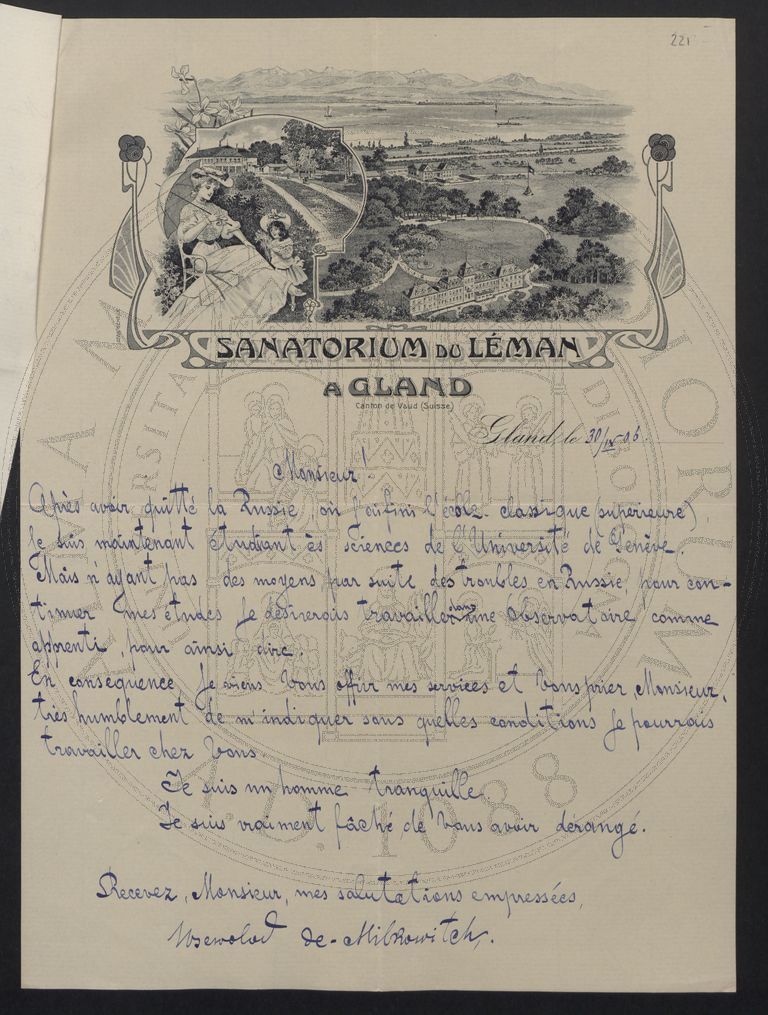 221
SANATORIUM DU LÉMAN
A GLAND
Canton de Vaud (Suisse)
Gland, le 30/IX 06.
Monsieur!
Après avoir quitté la Russie, où j'ai fini l'école classique (supérieure),
je suis maintenant étudiant ès sciences de l'Université de Genève.
Mais n'ayant pas des moyens, par suite des troubles en Russie, pour con-
tinuer mes études je désirerais travailler dans une observatoire comme
apprenti, pour ainsi dire.
En conséquence je viens Vous offrir mes services et Vous prier, Monsieur,
très humblement de m'indiquer sous quelles conditions je pourrais
travailler chez Vous.
Je suis un homme tranquille.
Je suis vraiment fâché de Vous avoir dérangé.
Recevez, Monsieur, mes salutations empressées,
Wsewolod de-Milkowitch.
ALMA MATER STUDIORUM
A.D. 1088